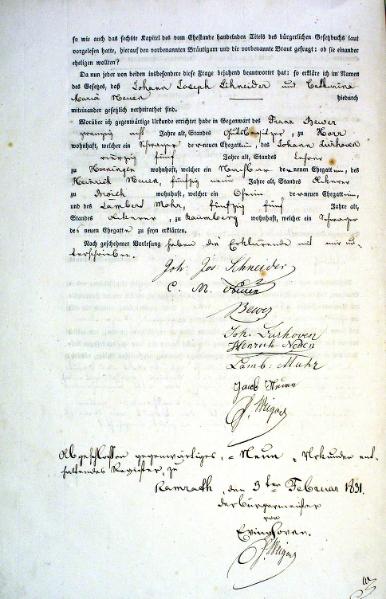 so wie auch das sechste Kapitel des vom Ehestande handelnden Titels des bürgerlichen Gesetzbuchs laut
vorgelesen hatte, hierauf den vorbenannten Bräutigam und die vorbenannte Braut gefragt: ob sie einander
ehelichen wollten?
Da nun jeder von beiden insbesondere diese Frage bejahend beantwortet hat: so erkläre ich im Namen
des Gesetzes, daß Johann Joseph Schneider und Catharina
Maria Neuen hiedurch
miteinander gesetzlich verheirathet sind.
Worüber ich gegenwärtige Urkunde errichtet habe in Gegenwart des Franz Bewer
zwanzig acht Jahre alt, Standes zu Horr
wohnhaft, welcher ein Schwager der neuen Ehegattin, des Johann Lurhoven
vierzig fünf Jahre alt, Standes
zu wohnhaft, welcher ein der neuen Ehegattin, des
Heinrich Neuen, fünfzig Jahre alt, Standes Ackerer
zu Broich wohnhaft, welcher ein Oheim der neuen Ehegattin,
und des Lambert Mohr, fünfzig fünf Jahre alt,
Standes Ackerer, zu wohnhaft, welcher ein Schwager
des neuen Ehegatten zu seyn erklären.
Nach geschehener Vorlesung haben die Erklärende mit mir un-
terschrieben.
Joh. Jos Schneider
C. M. Neuen
Bewer
Joh. Lurhoven
Heinrich Neuen
Lamb. Mohr
Jacob Neuen
Abgeschlossen gegenwärtiges, Neun Urkunden ent-
haltendes Register, zu
Ramrath, den 9ten Februar 1831.
der Bürgermeister
von
Evinghoven.